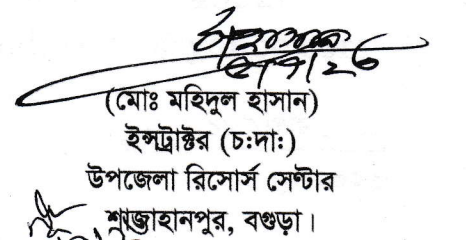 (মোঃ মহিদুল হাসান)
ইন্সট্রাক্টর (চ:দা:)
উপজেলা রিসোর্স সেন্টার
শাজাহানপুর, বগুড়া।